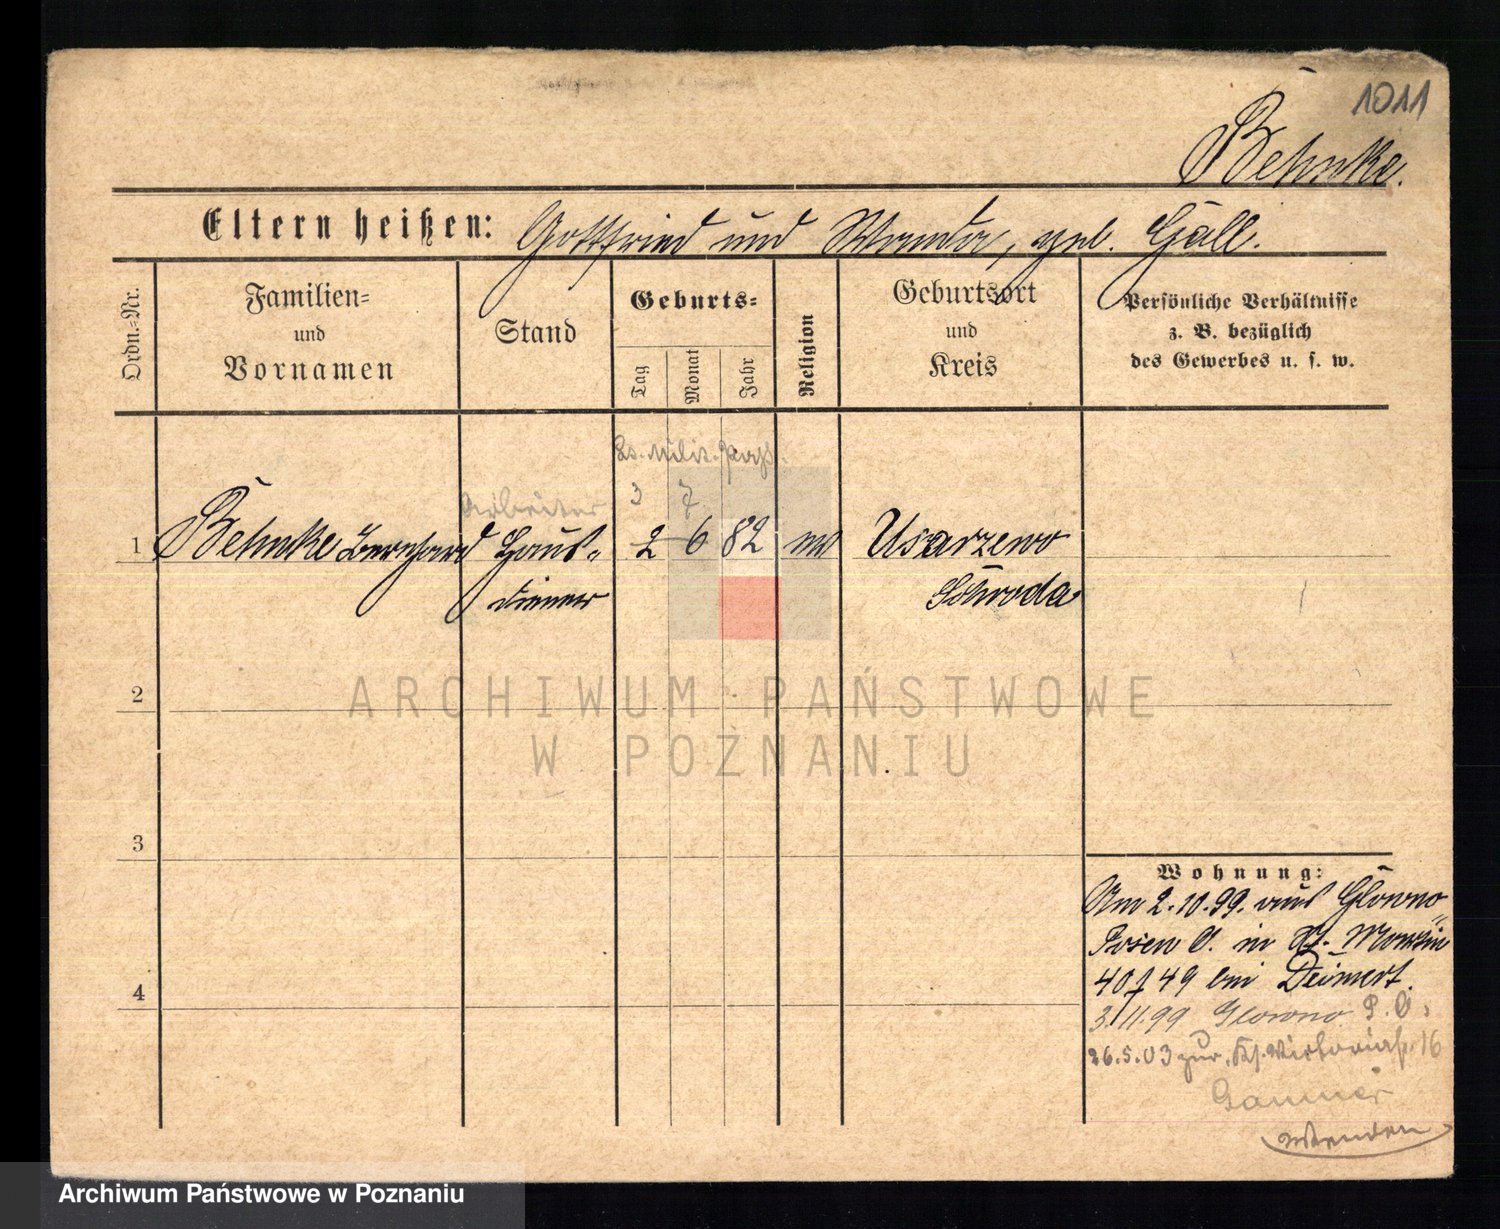 1011
Behnke.
Eltern heißen: Gottfried und Wanda, geb. Gäll.
Ordn.-Nr.
Familien-
und
Vornamen
Stand
Geburts-
Tag
Monat
Jahr
Religion
Geburtsort
und
Kreis
Persönliche Verhältnisse
z. B. bezüglich
des Gewerbes u. s. w.
Milit. Paß.
Arbeiter 3 7
1 Behnke Bernhard Haus- 2 6 82 ev Usarzewo
diener Schroda
2
ARCHIWUM PAŃSTWOWE
W POZNANIU
3
Wohnung:
Am 2.10.99. aus Glowno
Posen O. in St. Martin
40/49 bei
3/11.99 Glowno P. O.
26.5.03 zur. Victoriastr. 16
4
wenden
Archiwum Państwowe w Poznaniu